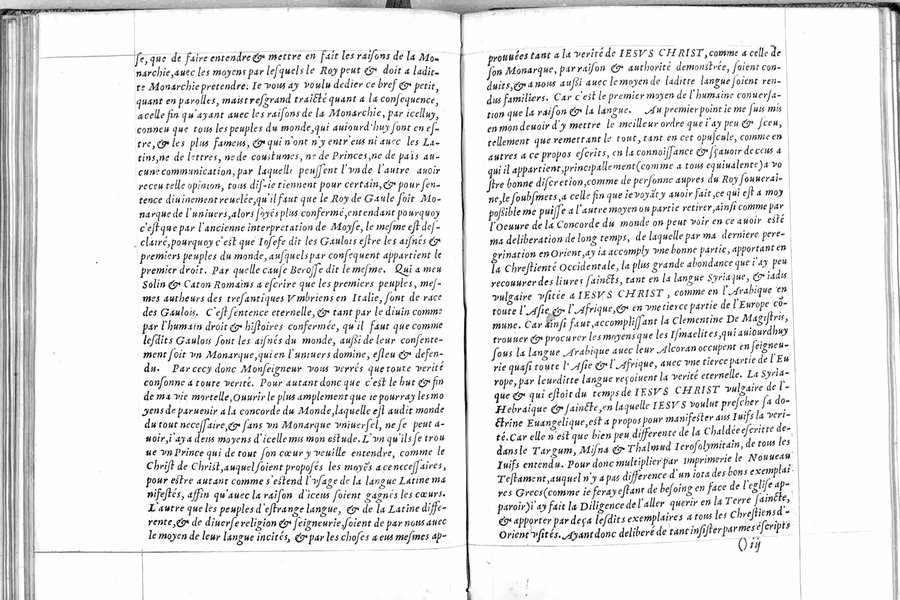 se, que de faire entendre & mettre en fait les raisons de la Mo-
narchie, auec les moyens par lesquels le Roy peut & doit a ladit-
te Monarchie pretendre: Ie vous ay voulu dedier ce bref & petit,
quant en parolles, mais tresgrand traicté quant a la consequence,
a celle fin qu'ayant auec les raisons de la Monarchie, par icelluy,
conneu que tous les peuples du monde, qui auiourd'huy sont en es-
tre, & les plus fameus, & qui n'ont n'y entr'eus ni auec les La-
tins, ne de lettres, ne de coustumes, ne de Princes, ne de païs au-
cune communication, par laquelle peussent l'vn de l'autre auoir
receu telle opinion, tous dis-ie tiennent pour certain, & pour sen-
tence diuinement reuelée, qu'il faut que le Roy de Gaule soit Mo-
narque de l'vniuers, alors soyés plus confermé, entendant pourquoy
c'est que par l'ancienne interpretation de Moyse, le mesme est des-
clairé, pourquoy c'est que Iosefe dit les Gaulois estre les aisnés &
premiers peuples du monde, ausquels par consequent appartient le
premier droit. Par quelle cause Berosse dit le mesme. Qui a meu
Solin & Caton Romains a escrire que les premiers peuples, mes-
mes autheurs des tresantiques Vmbriens en Italie, sont de race
des Gaulois. C'est sentence eternelle, & tant par le diuin comme
par l'humain droit & histoires confermée, qu'il faut que comme
lesdits Gaulois sont les aisnés du monde, aussi de leur consente-
ment soit vn Monarque, qui en l'vniuers domine, esleu & defen-
du. Par cecy donc Monseigneur vous verrés que toute verité
consonne a toute verité. Pour autant donc que c'est le but & fin
de ma vie mortelle, Ouurir le plus amplement que ie pourray les mo
yens de paruenir a la concorde du Monde, laquelle est audit monde
du tout necessaire, & sans vn Monarque vniuersel, ne se peut a-
uoir, i'ay a deus moyens d'icelle mis mon estude. L'vn qu'il se trou
ue vn Prince qui de tout son cœur y veuille entendre, comme le
Christ de Christ, auquel soient proposés les moyēs a ce necessaires,
pour estre autant comme s'estend l'vsage de la langue Latine ma
nifestés, affin qu'auec la raison d'iceus soient gagnés les cœurs.
L'autre que les peuples d'estrange langue, & de la Latine diffe-
rente, & de diuerse religion & seigneurie, soient de par nous auec
le moyen de leur langue incités, & par les choses a eus mesmes ap-
prouuées tant a la verité de IESVS CHRIST, comme a celle de
son Monarque, par raison & authorité demonstrée, soient con-
duits, & a nous aussi auec le moyen de laditte langue soient ren-
dus familiers. Car c'est le premier moyen de l'humaine conuersa-
tion que la raison & la langue. Au premier point ie me suis mis
en mon deuoir d'y mettre le meilleur ordre que i'ay peu & sceu,
tellement que remettant le tout, tant en cet opuscule, comme en
autres a ce propos escrits, en la connoissance & sçauoir de ceus a
qui il appartient, principallement (comme a tous equiualente) a vo
stre bonne discretion, comme de personne aupres du Roy souuerai-
ne, le soubsmets, a celle fin que ie voyāt y auoir fait, ce qui est a moy
possible me puisse a l'autre moyen ou partie retirer, ainsi comme par
l'Oeuure de la Concorde du monde on peut voir en ce auoir esté
ma deliberation de long temps, de laquelle par ma derniere pere-
grination en Orient, ay ia accomply vne bonne partie, apportant en
la Chrestienté Occidentale, la plus grande abondance que i'ay peu
recouurer des liures saincts, tant en la langue Syriaque, & iadis
vulgaire vsitée a IESVS CHRIST, comme en l'Arabique en
toute l'Asie & l'Afrique, & en vne tierce partie de l'Europe cō-
mune. Car ainsi faut, accomplissant la Clementine De Magistris,
trouuer & procurer les moyens que les Ismaelites, qui auiourdhuy
sous la langue Arabique auec leur Alcoran occupent en seigneu-
rie quasi toute l'Asie & l'Afrique, auec vne tierce partie de l'Eu
rope, par leurditte langue reçoiuent la verité eternelle. La Syria-
que & qui estoit du temps de IESVS CHRIST vulgaire de l'-
Hebraique & saincte, en laquelle IESVS voulut prescher sa do-
ctrine Euangelique, est a propos pour manifester aus Iuifs la veri-
té. Car elle n'est que bien peu differente de la Chaldée escritte de-
dans le Targum, Misna & Thalmud Ierosolymitain, de tous les
Iuifs entendu. Pour donc multiplier par imprimerie le Nouueau
Testament, auquel n'y a pas difference d'un iota des bons exemplai
res Grecs (comme ie feray estant de besoing en face de l'eglise ap-
paroir) i'ay fait la Diligence de l'aller querir en la Terre saincte,
& apporter par deça lesdits exemplaires a tous les Chrestiens d'-
Orient vsités. Ayant donc deliberé de tant insister par mes escripts
() iij